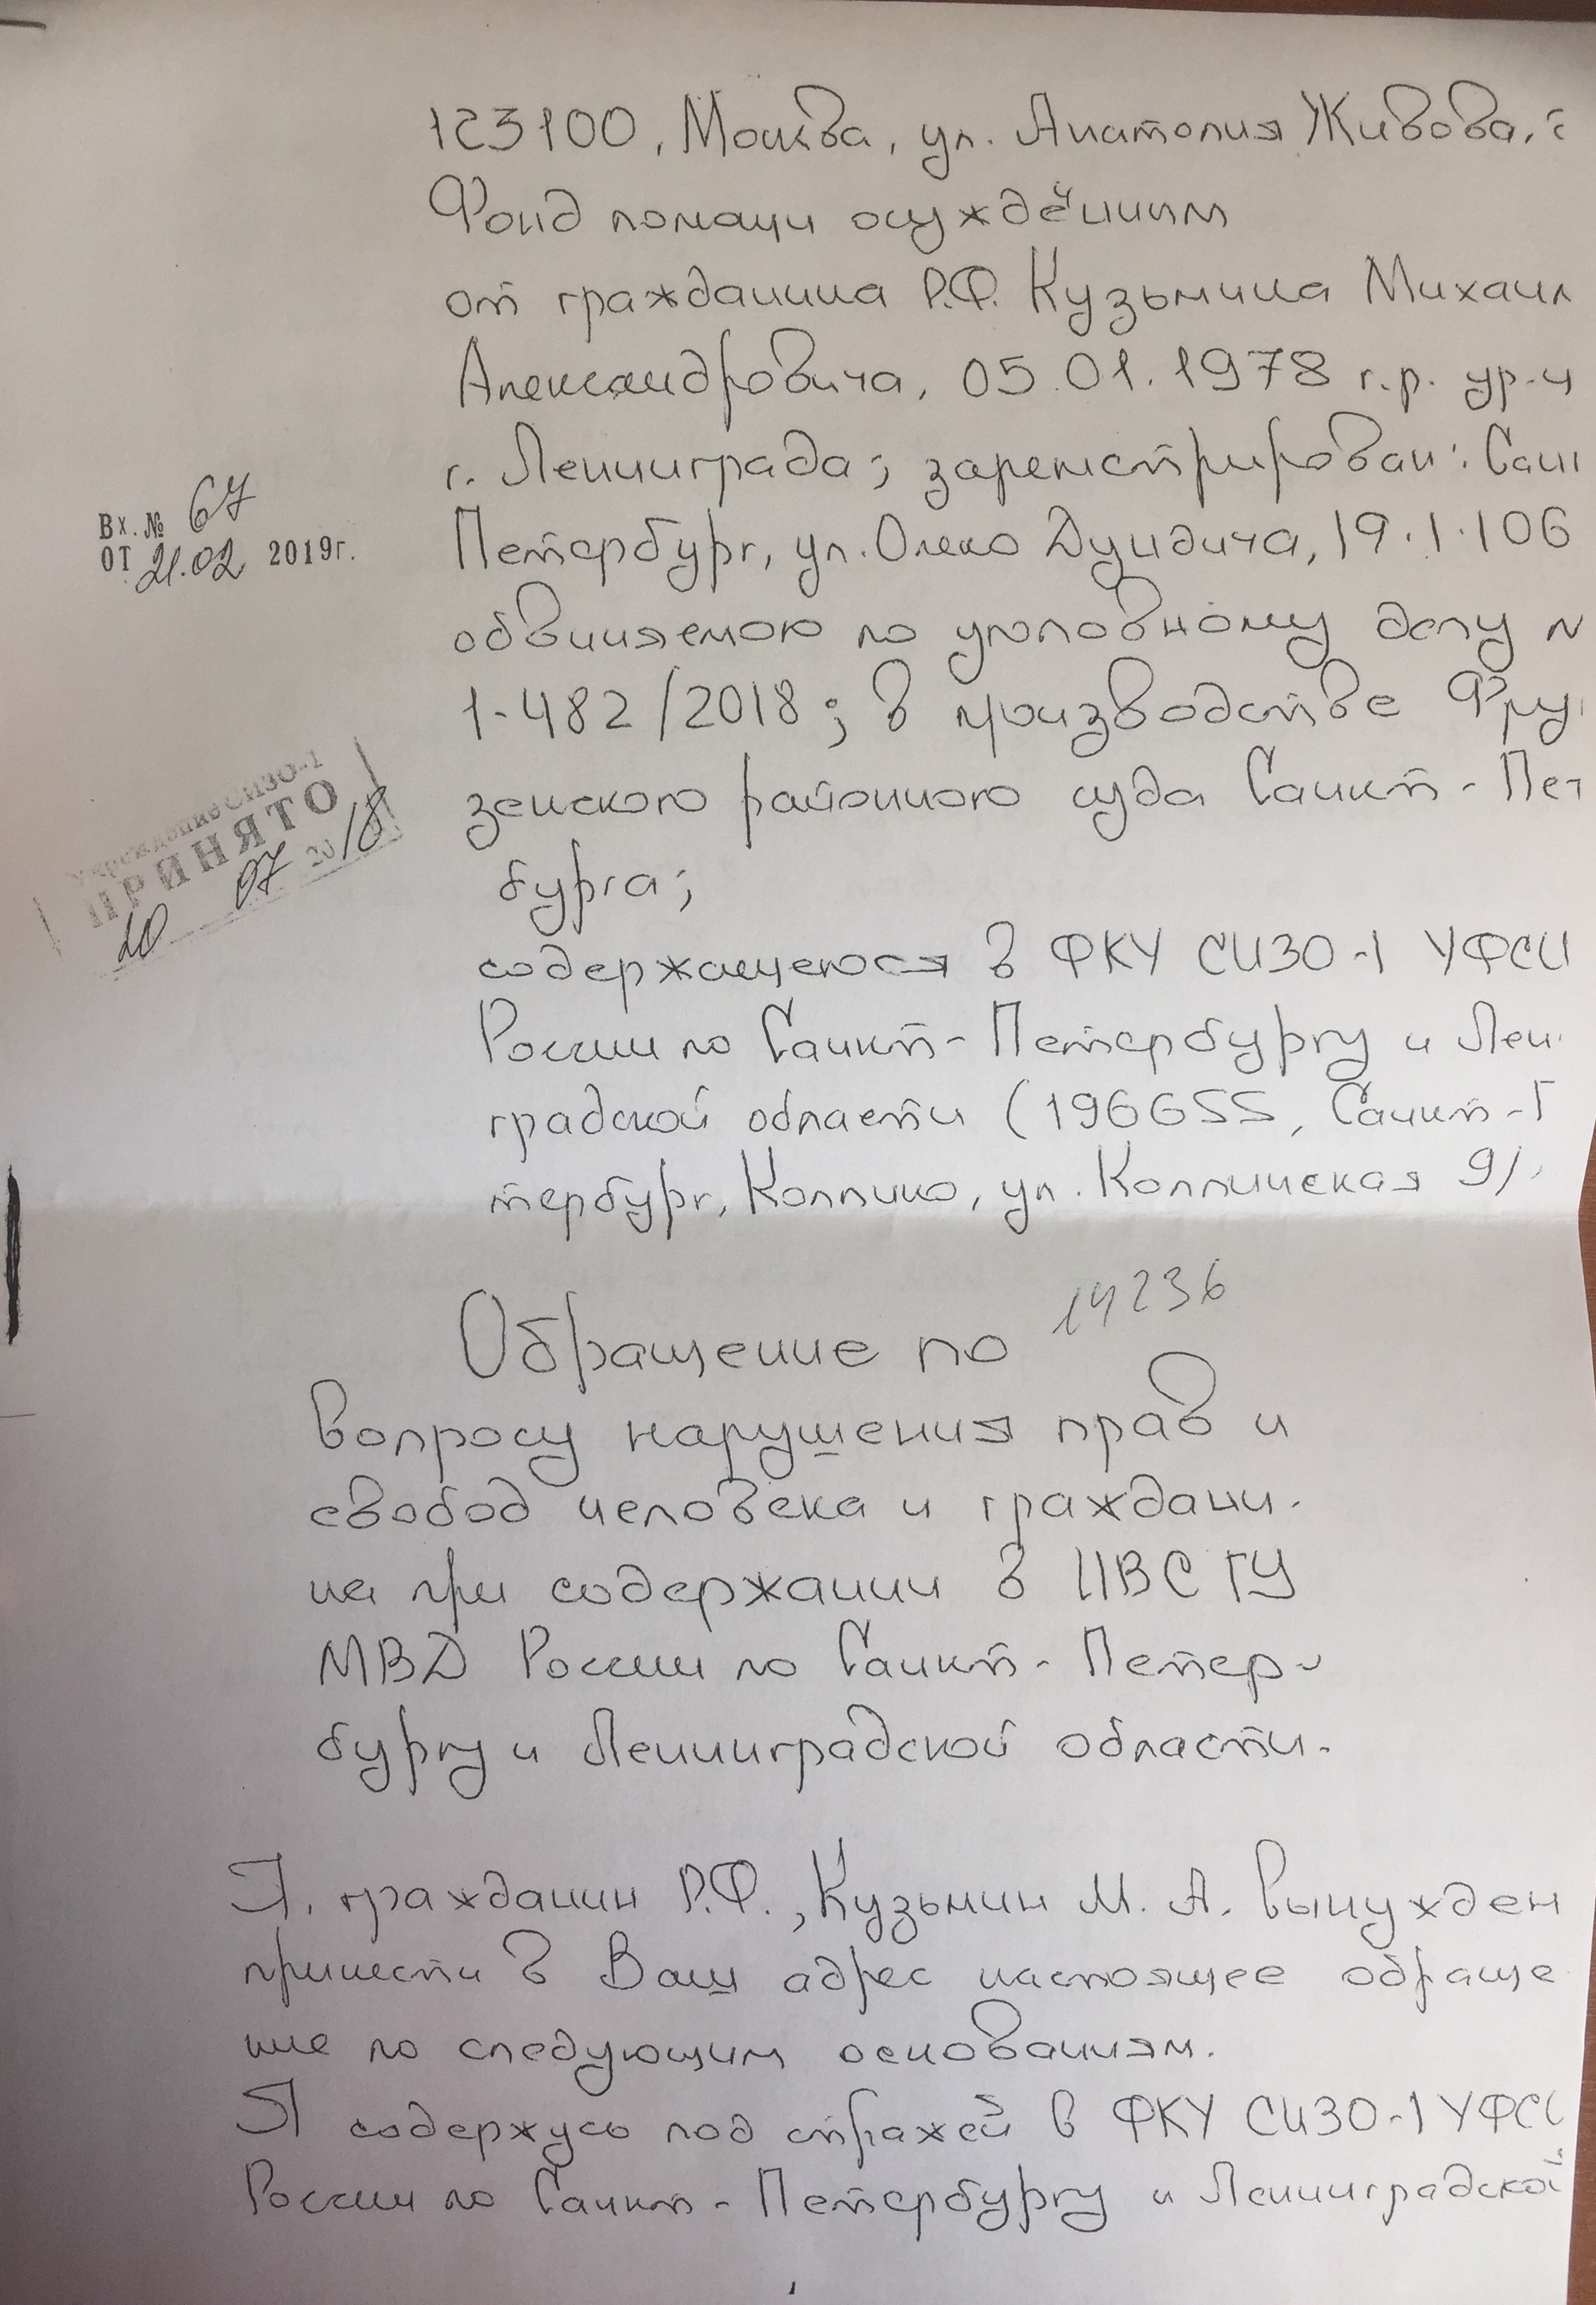 123100, Москва, ул. Анатолия Живова,
Фонд помощи осуждённым
от гражданина Р.Ф. Кузьмина Михаил
Александровича, 05.01.1978 г.р. ур-ч
г. Ленинграда; зарегистрирован: Сан
Вх. № 67
от 21.02 2019г.
Петербург, ул. Олеко Дундича, 19.1.106
обвиняемого по уголовному делу №
1-482/2018; в производстве Фру
Учреждение СИЗО-1
ПРИНЯТО
20 07 2018
зенского районного суда Санкт-Пет
бурга;
содержащегося в ФКУ СИЗО-1 УФСИ
России по Санкт-Петербургу и Лен
градской области (196655, Санкт-П
тербург, Колпино, ул. Колпинская 9/
14236
Обращение по
вопросу нарушения прав и
свобод человека и граждани-
на при содержании в ИВС ГУ
МВД России по Санкт-Петер-
бургу и Ленинградской области.
Я, гражданин Р.Ф., Кузьмин М.А. вынужден
принести в Ваш адрес настоящее обраще
ние по следующим основаниям.
Я содержусь под стражей в ФКУ СИЗО-1 УФС
России по Санкт-Петербургу и Ленинградской